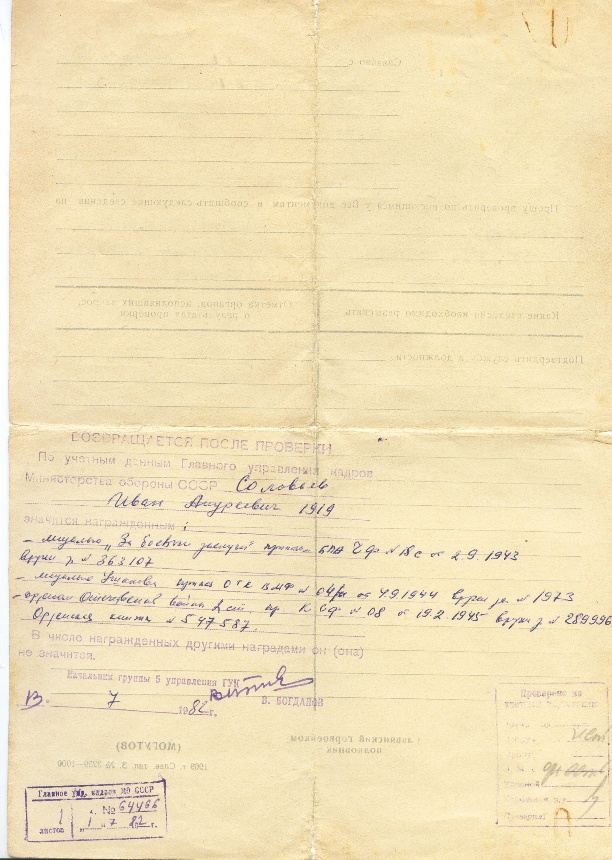 Прошу проверить по имеющимся у Вас документам и сообщить следующие сведения на
Отметка органов, исполнявших запрос,
о результатах проверки
Какие сведения необходимо разыскать
Подтвердить службу в должности
ВОЗВРАЩАЕТСЯ ПОСЛЕ ПРОВЕРКИ
По учетным данным Главного управления кадров
Министерства обороны СССР Соловьев
Иван Андреевич 1919
значится награжденным:
– медалью „За боевые заслуги" приказ ЧФ № 18с от 2.9.1943
вручен з. № 363107
– медалью Ушакова приказ ВМФ № от 4.9.1944 вручен зн. № 1973
– орденом Отечественной войны 2 ст. пр. К № 08 от 19.2.1945 вручен з. № 289996
Орденская книжка № 547587.
В число награжденных другими наградами он (она)
не значится.
Начальник группы 5 управления ГУК
В. БОГДАНОВ
7 1982 г.
Славянский горвоенком
полковник
(МОГУТОВ)
1969 г. Слав. тип. З. № 3229—1000
Главное упр. кадров МО СССР
1
листов
№ 64466
1 7 82 г.
Проверено по
Проверил